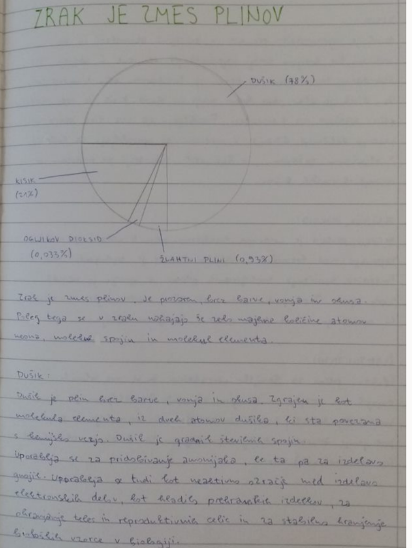 ZRAK JE ZMES PLINOV
DUŠIK (78%)
KISIK
(21%)
OGLJIKOV DIOKSID
(0,033%)
ŽLAHTNI PLINI (0,93%)
Zrak je zmes plinov, je prozoren, brez barve, vonja in okusa.
Poleg tega se v zraku nahajajo še zelo majhne količine atomov
molekul spojin in molekul elementa.
DUŠIK:
Dušik je plin brez barve, vonja in okusa. Zgrajen je kot
molekula elementa, iz dveh atomov dušika, ki sta povezana
s kemijsko vezjo. Dušik je gradnik številnih spojin.
Uporablja se za pridobivanje amonijaka, le ta pa za izdelavo
gnojil. Uporablja se tudi kot neaktivno ozračje med izdelavo
elektronskih delov, kot hladilo prehranskih izdelkov, za
ohranjanje teles in reproduktivnih celic in za stabilno hranjenje
bioloških vzorcev v biologiji.